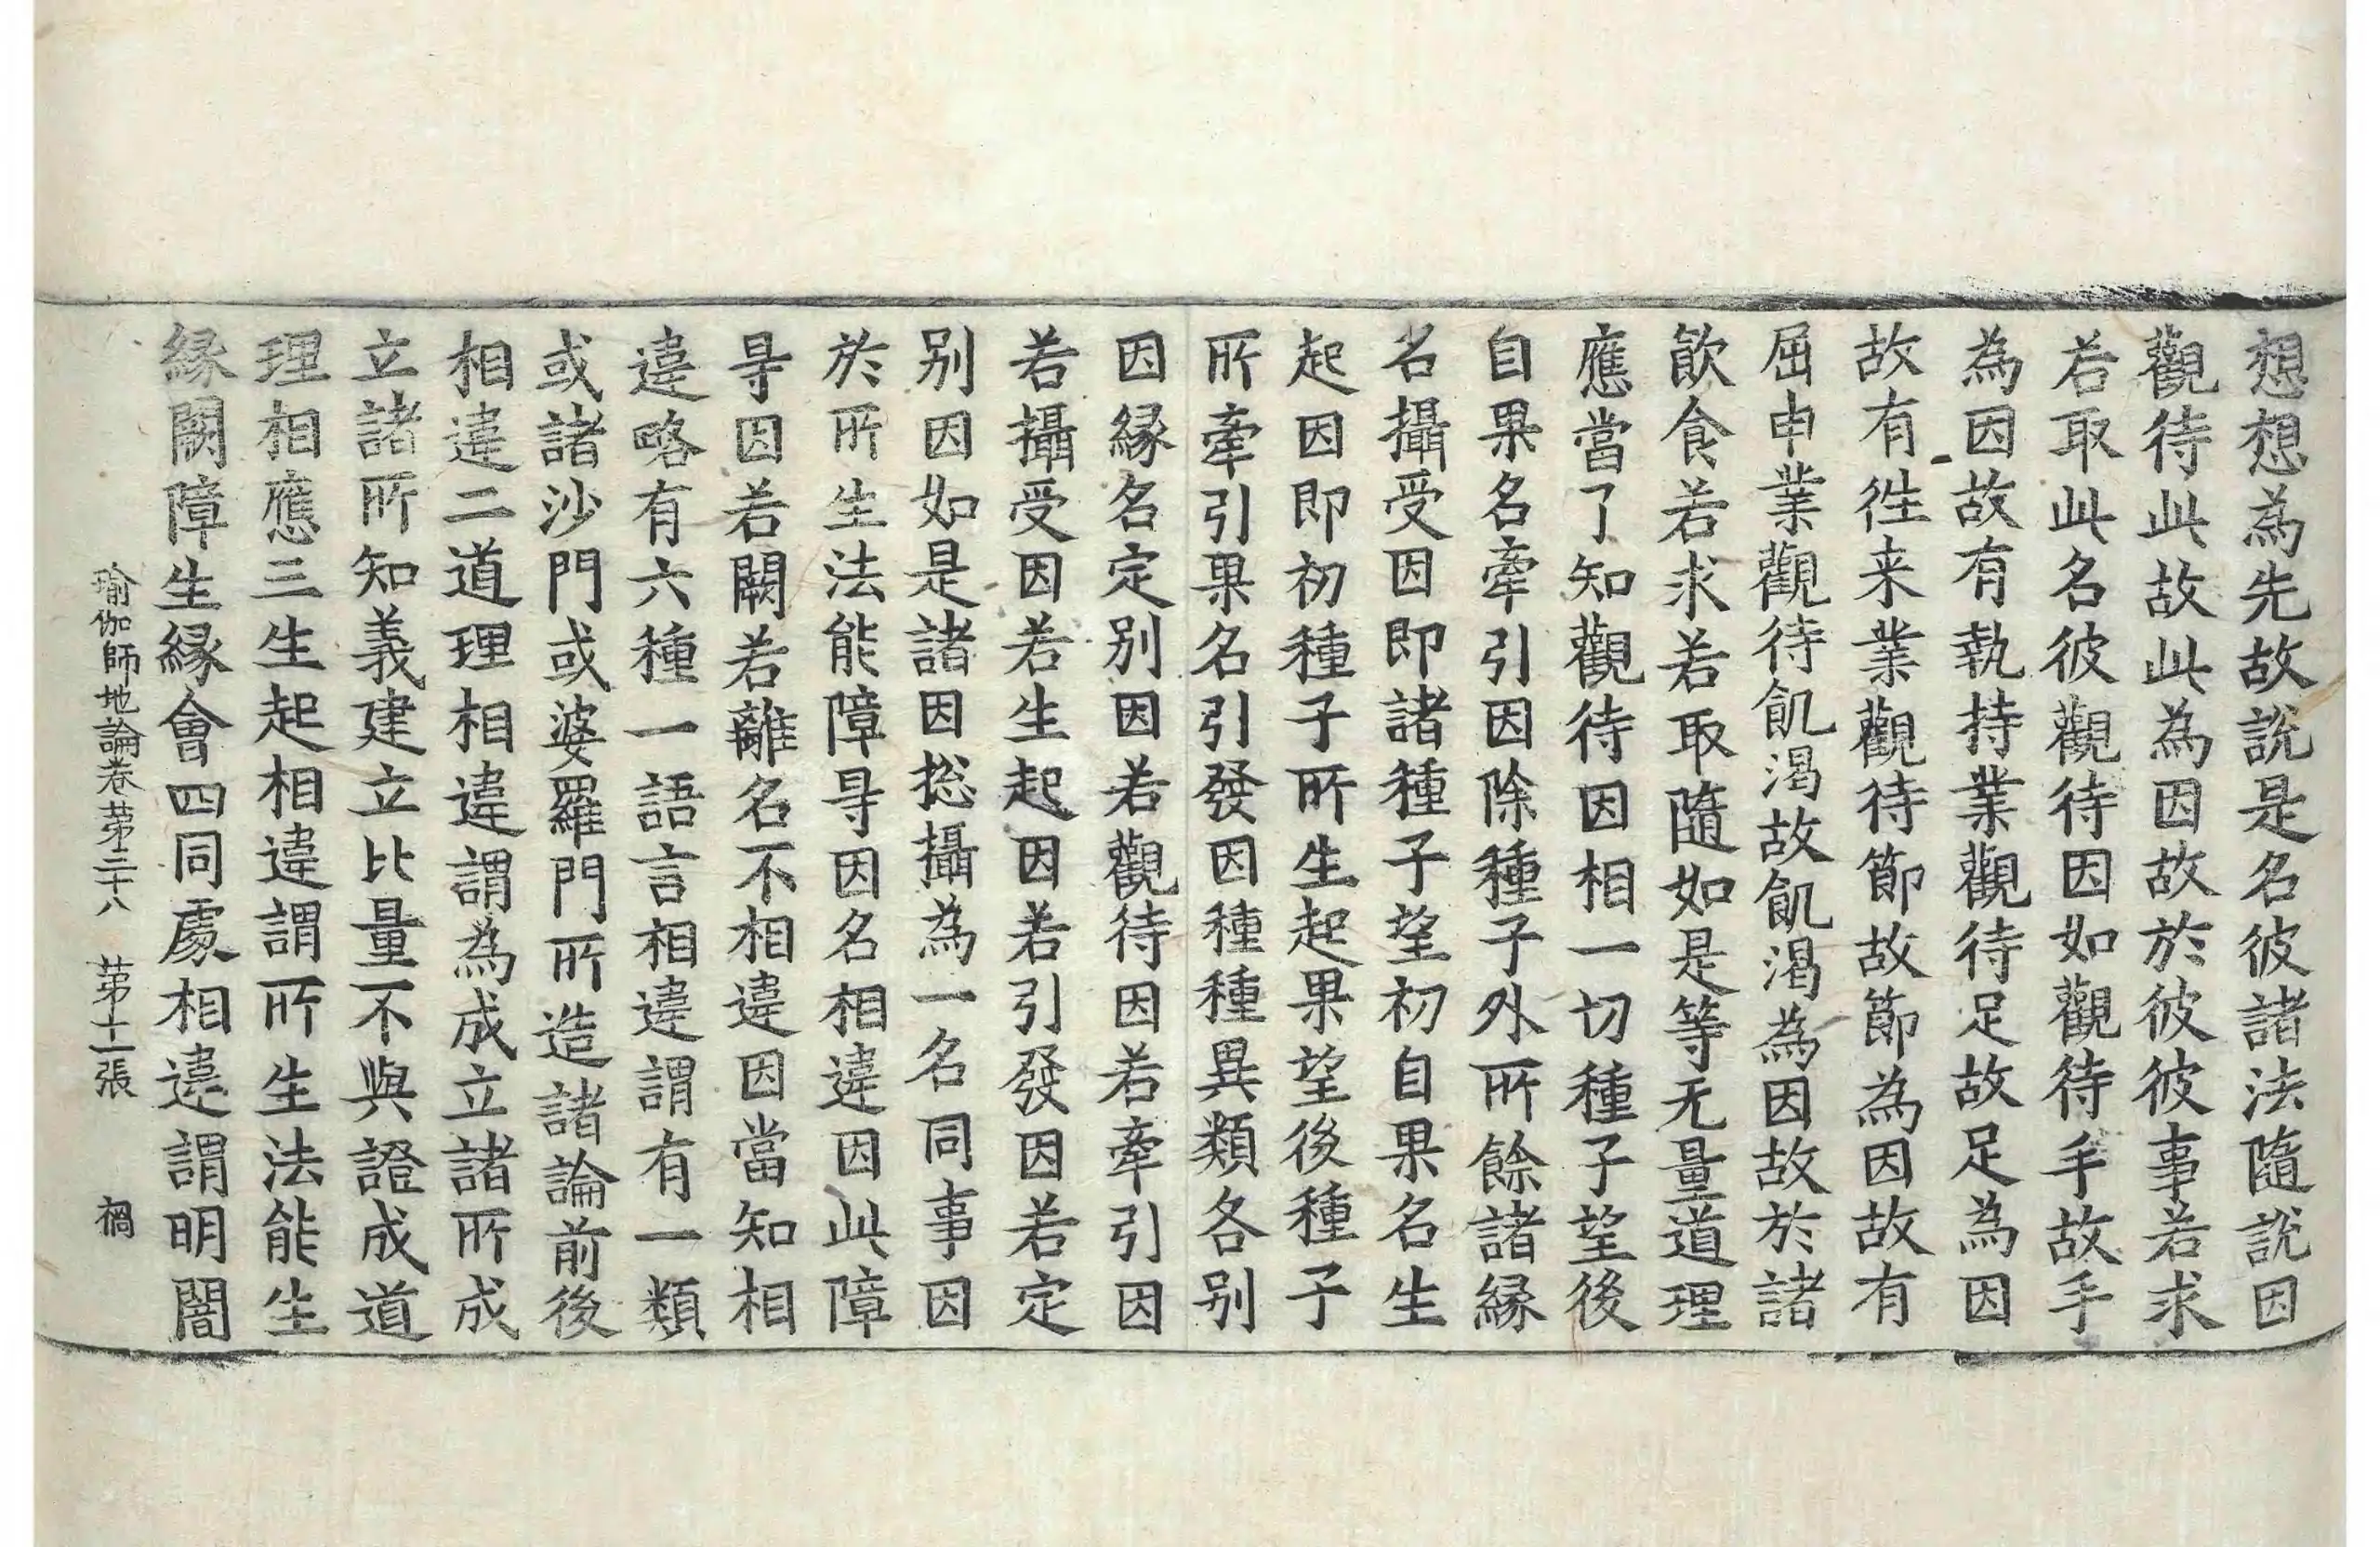 想想為先故説是名彼諸法隨説因
觀待此故此為因故於彼彼事若求
若取此名彼觀待因如觀待手故手
為因故有執持業觀待足故足為因
故有徃来業觀待節故節為因故有
屈申業觀待飢渴故飢渴為因故於諸
飲食若求若取隨如是等无量道理
應當了知觀待因相一切種子望後
自果名牽引因除種子外所餘諸縁
名攝受因即諸種子望初自果名生
起因即初種子所生起果望後種子
所牽引果名引發因種種異類各别
因縁名定别因若觀待因若牽引因
若攝受因若生起因若引發因若定
别因如是諸因捴攝為一名同事因
於所生法能障㝵因名相違因此障
㝵因若闕若離名不相違因當知相
違略有六種一語言相違謂有一類
或諸沙門或婆羅門所造諸論前後
相違二道理相違謂為成立諸所成
立諸所知義建立比量不與證成道
理相應三生起相違謂所生法能生
縁闕障生縁會四同處相違謂明闇
瑜伽師地論卷苐三十八 苐十一張 禍